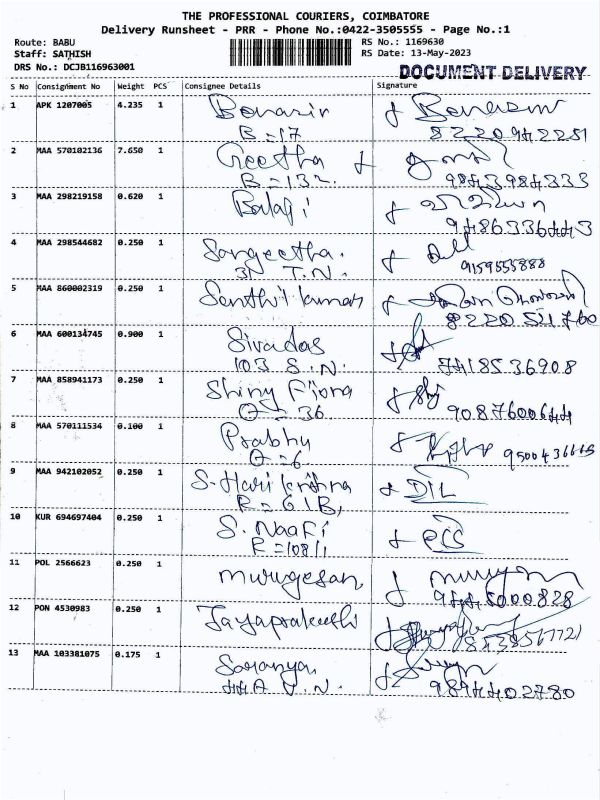 THE PROFESSIONAL COURIERS, COIMBATORE
Delivery Runsheet - PRR - Phone No.:0422-3505555 - Page No.:1
Route: BABU
Staff: SATHISH
DRS No.: DCJB116963001
RS No.: 1169630
RS Date: 13-May-2023
DOCUMENT DELIVERY
S No Consignment No Weight PCS Consignee Details Signature
1 APK 1207005 4.235 1
B=17 8220942251
2 MAA 570102136 7.650 1 Geetha
B=132 9843984333
3 MAA 298219158 0.620 1 Balaji
9486336443
4 MAA 298544682 0.250 1 Sangeetha.
31 T.N. 9159555888
5 MAA 860002319 0.250 1 Senthil kumar
8220511760
6 MAA 600134745 0.900 1 Sivadas
103 S.N. 7418536908
7 MAA 858941173 0.250 1 Shiny Fiona
O=36 9087600644
8 MAA 570111534 0.100 1 Prabhu
O=6
9 MAA 942102052 0.250 1 S-Hari krishna DIL
R=61B,
10 KUR 694697404 0.250 1 S. PCS
11 POL 2566623 0.250 1 murugesan,
9445000828
12 PON 4530983 0.250 1 Jayaprakash
13 MAA 103381075 0.175 1 Saranya,
44A V.N. 9894402780